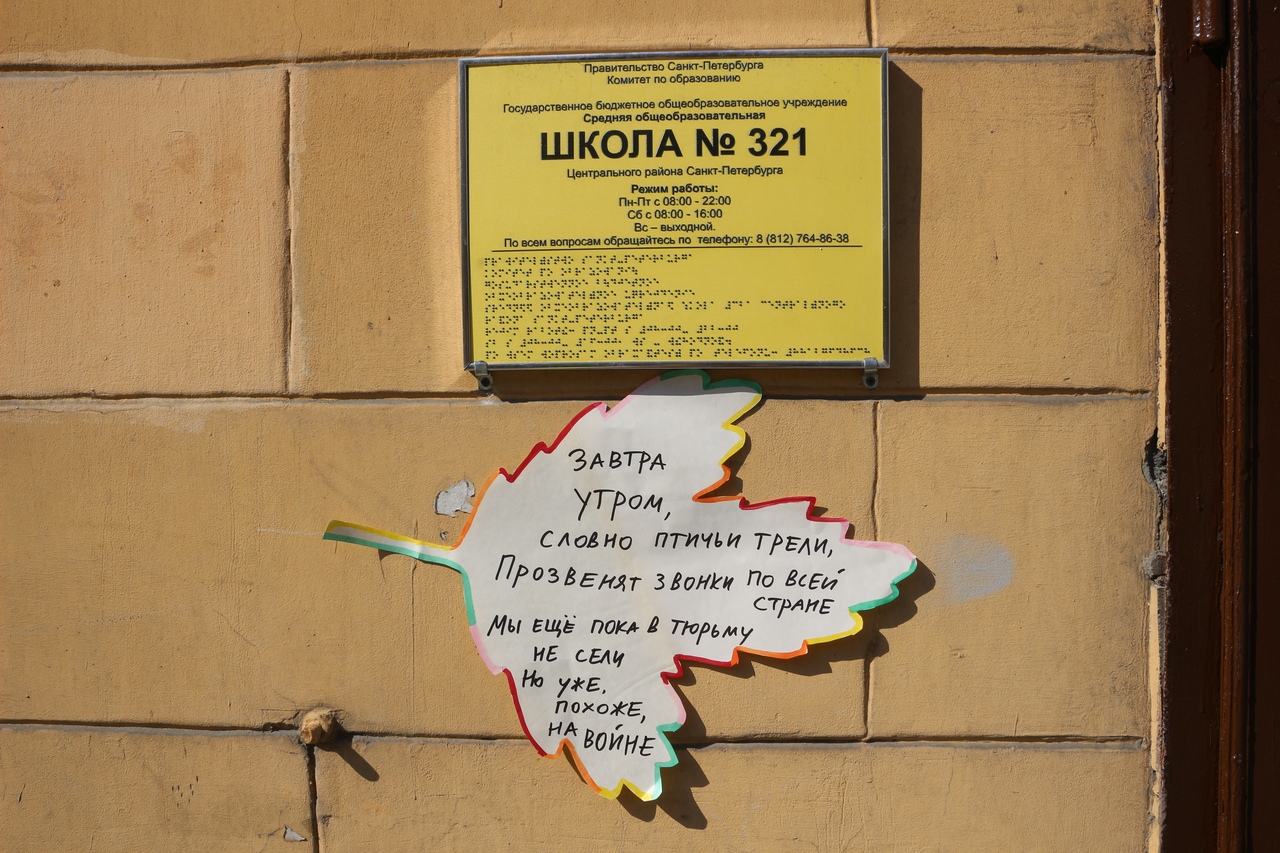 Правительство Санкт-Петербурга
Комитет по образованию
Государственное бюджетное общеобразовательное учреждение
Средняя общеобразовательная
ШКОЛА № 321
Центрального района Санкт-Петербурга
Режим работы:
Пн-Пт с 08:00 - 22:00
Сб с 08:00 - 16:00
Вс – выходной.
По всем вопросам обращайтесь по телефону: 8 (812) 764-86-38
ЗАВТРА
УТРОМ,
СЛОВНО ПТИЧЬИ ТРЕЛИ,
ПРОЗВЕНЯТ ЗВОНКИ ПО ВСЕЙ
СТРАНЕ
МЫ ЕЩЁ ПОКА В ТЮРЬМУ
НЕ СЕЛИ
НО УЖЕ,
ПОХОЖЕ,
НА ВОЙНЕ